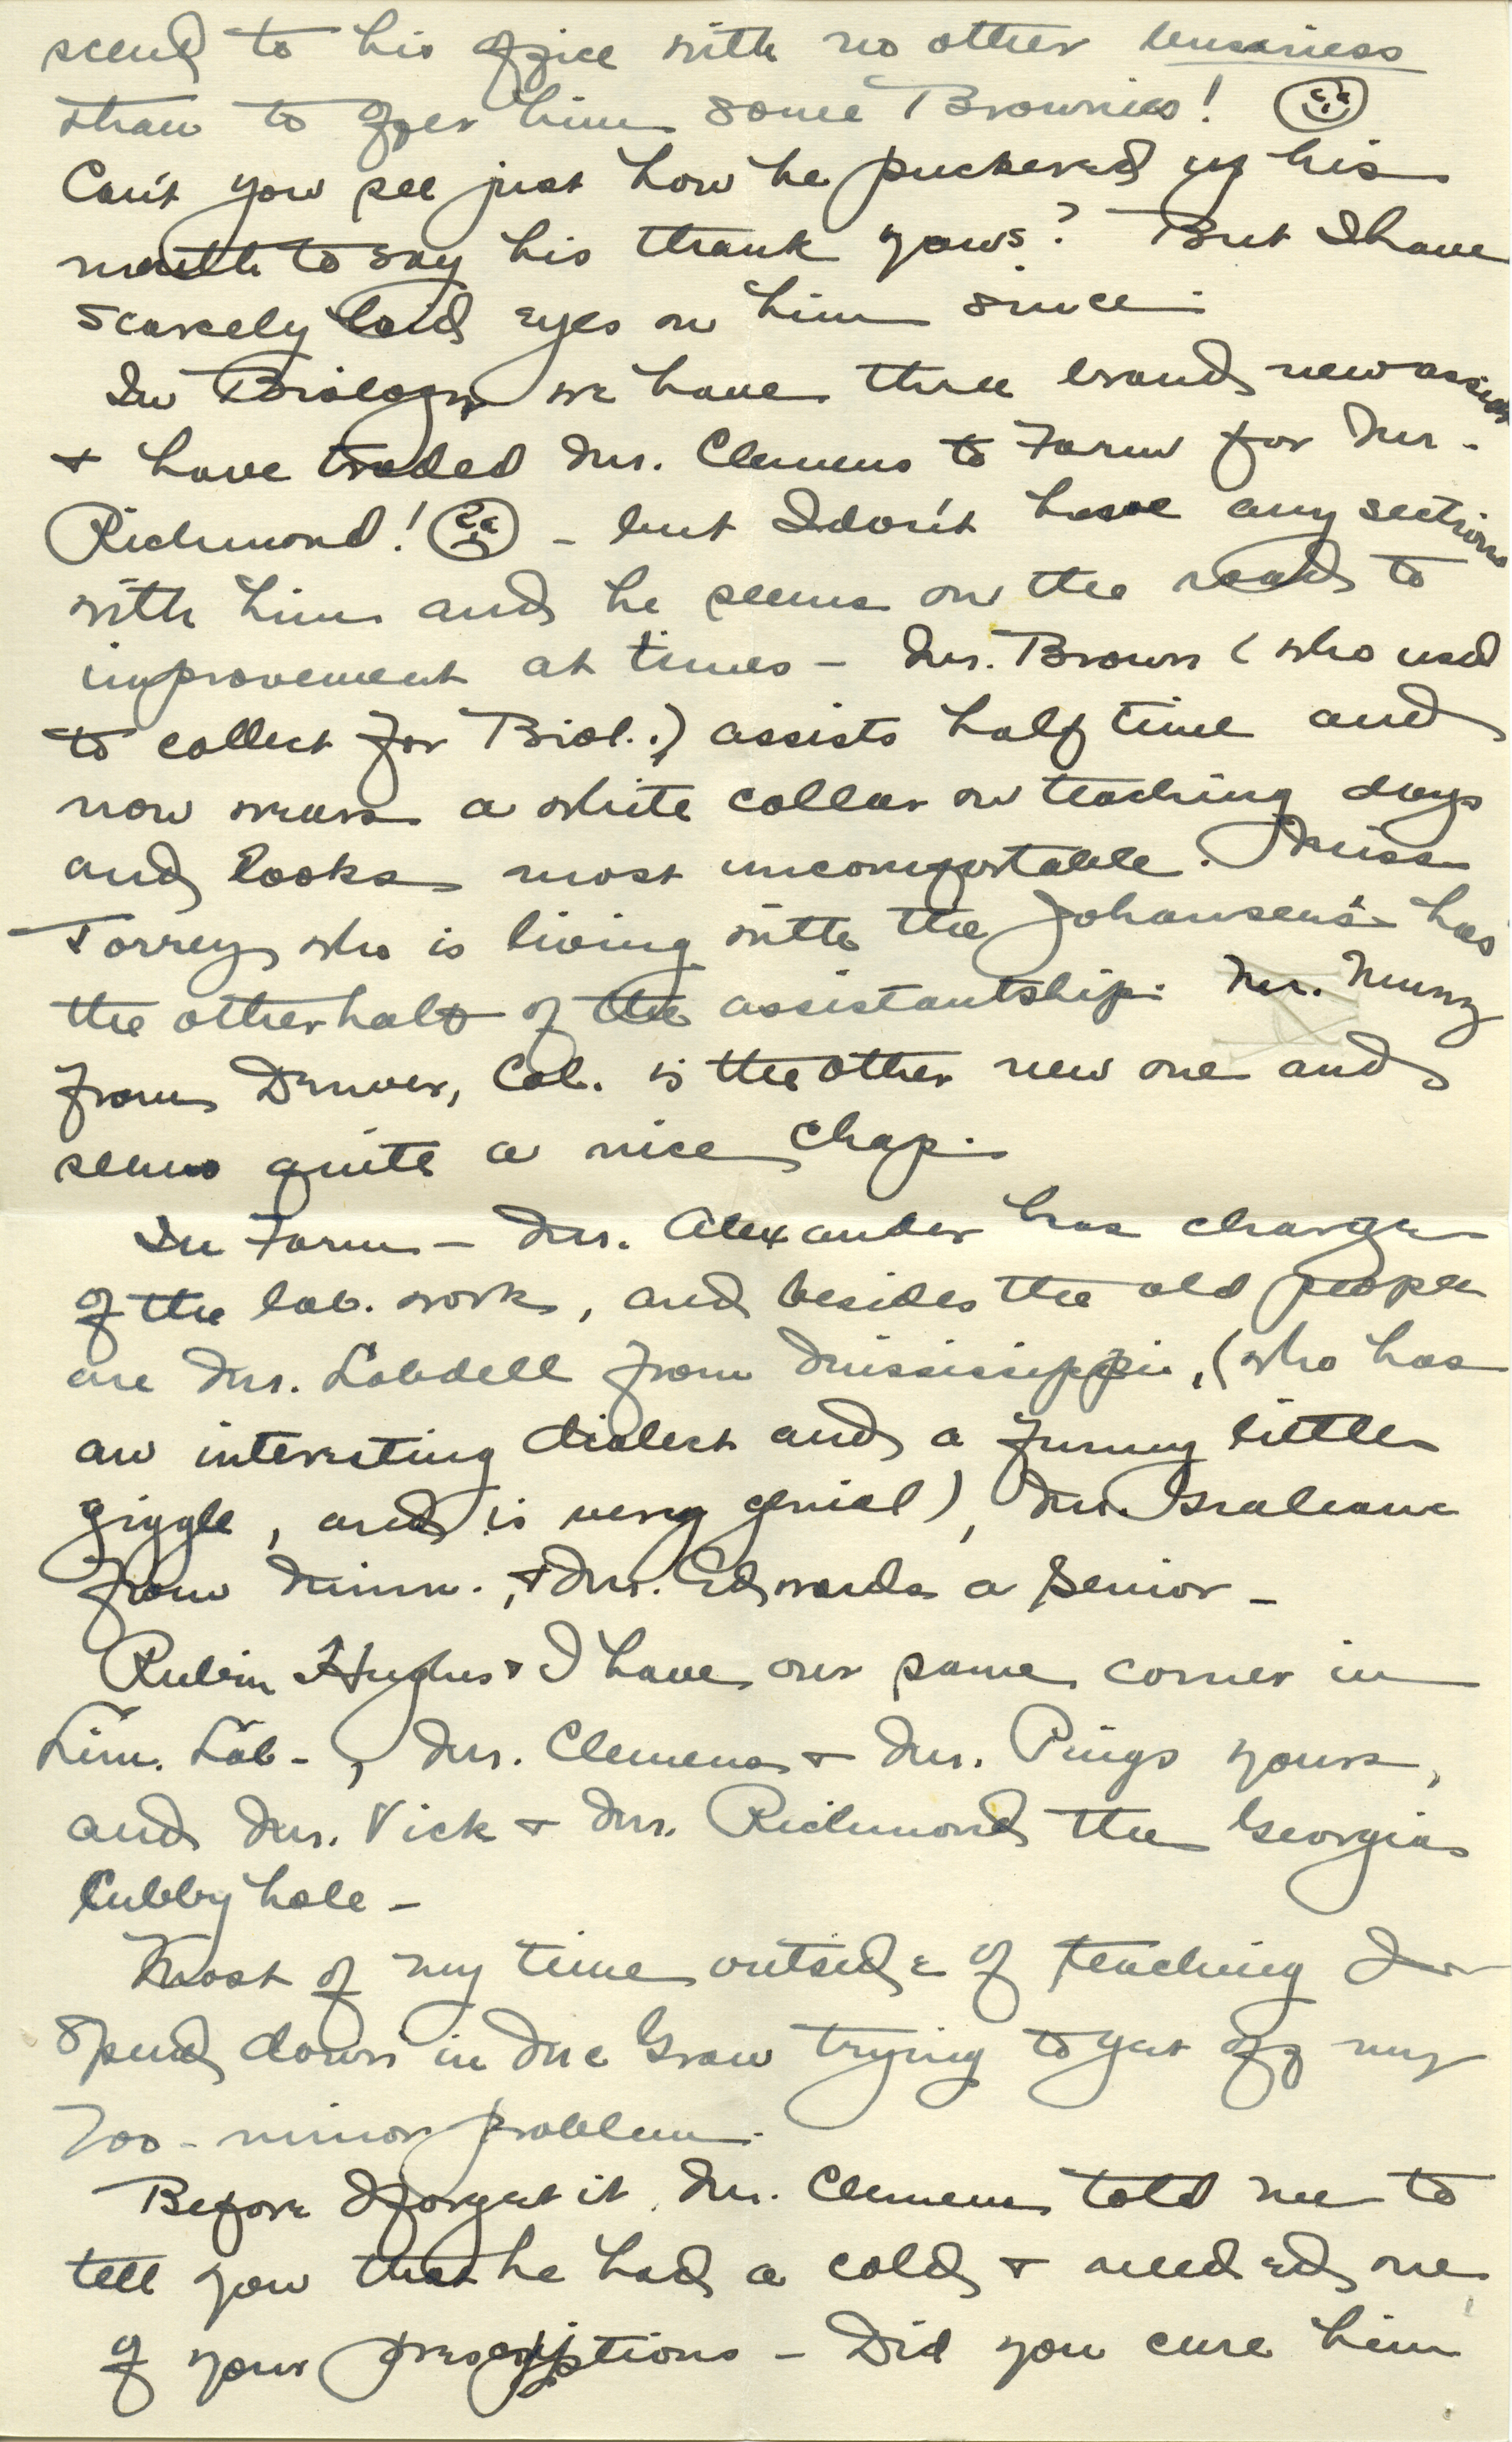 scend to his office with no other bussiness
than to offer him some Brownies!
Can't you see just how he puckered up his
mouth to say his thank yous? But I have
scarcely laid eyes on him since.
In Biology we have three brand new assists
& have traded Mr. Clemens to Farm for Mr.
Richmond! - but I don't have any sections
with him and he seems on the road to
improvement at times - Mr. Brown (who used
to collect for Biol.) assists half time and
now wears a white collar on teaching days
and looks most uncomfortable. Miss
Torrey who is living with the Johansen's has
the other half of the assistantship. Mr. Munz
from Denver, Col. is the other new one and
seems quite a nice chap.
In Farm - Mr. Alexander has charge
of the lab. work, and besides the old people
are Mr. Lobdell from Mississippi, (who has
an interesting dialect and a funny little
giggle, and is very genial), Mr. Graham
from Minn., & Mr. Edwards a Senior -
Rubin Hughes & I have our same corner in
Lim. Lab-, Mr. Clemens & Mr. Pings yours,
and Mr. Vick & Mr. Richmond the Georgia
Cubby hole -
Most of my time outside of teaching I
spend down in McGraw trying to get off my
Zoo-minor problem.
Before I forget it, Mr. Clemens told me to
tell you that he had a cold & needed one
of your prescriptions - Did you cure him